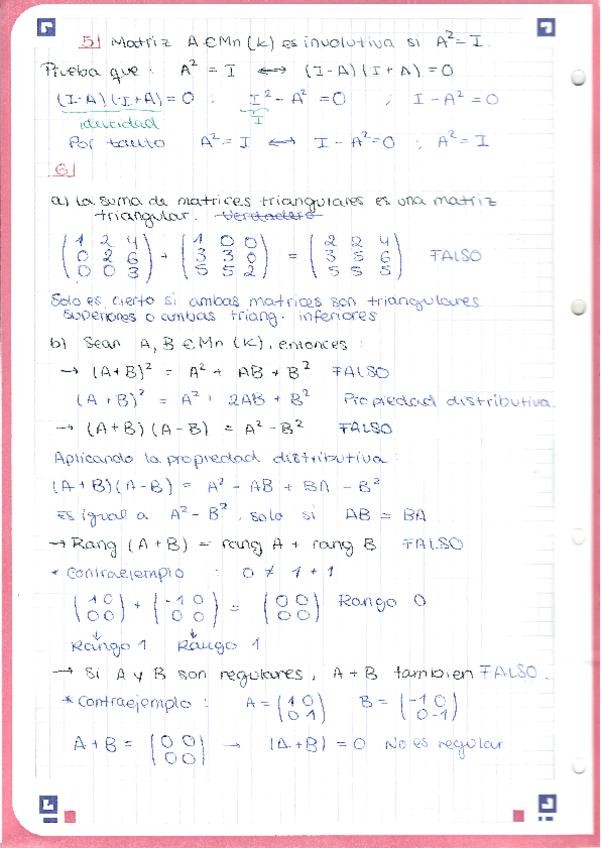 5) Matriz A ∈ Mn (K) es involutiva si A² = I.
Prueba que: A² = I ⟷ (I-A)(I+A) = 0
(I-A)(I+A) = 0 ; I² - A² = 0 ; I - A² = 0
identidad I
Por tanto A² = I ⟷ I - A² = 0 ; A² = I
6)
a) La suma de matrices triangulares es una matriz
triangular. Verdadero
(1 2 4 / 0 2 6 / 0 0 3) + (1 0 0 / 3 3 0 / 5 5 2) = (2 2 4 / 3 5 6 / 5 5 5) FALSO
Solo es cierto si ambas matrices son triangulares
superiores o ambas triang. inferiores
b) Sean A, B ∈ Mn (K), entonces:
→ (A+B)² = A² + AB + B² FALSO
(A+B)² = A² + 2AB + B² Propiedad distributiva.
→ (A+B)(A-B) = A² - B² FALSO
Aplicando la propiedad distributiva:
(A+B)(A-B) = A² - AB + BA - B²
Es igual a A² - B², solo si AB = BA
→ Rang (A+B) = rang A + rang B FALSO
* Contraejemplo : 0 ≠ 1 + 1
(1 0 / 0 0) + (-1 0 / 0 0) = (0 0 / 0 0) Rango 0
Rango 1 Rango 1
→ Si A y B son regulares, A + B tambien FALSO.
* Contraejemplo : A = (1 0 / 0 1) B = (-1 0 / 0 -1)
A+B = (0 0 / 0 0) → |A+B| = 0 No es regular